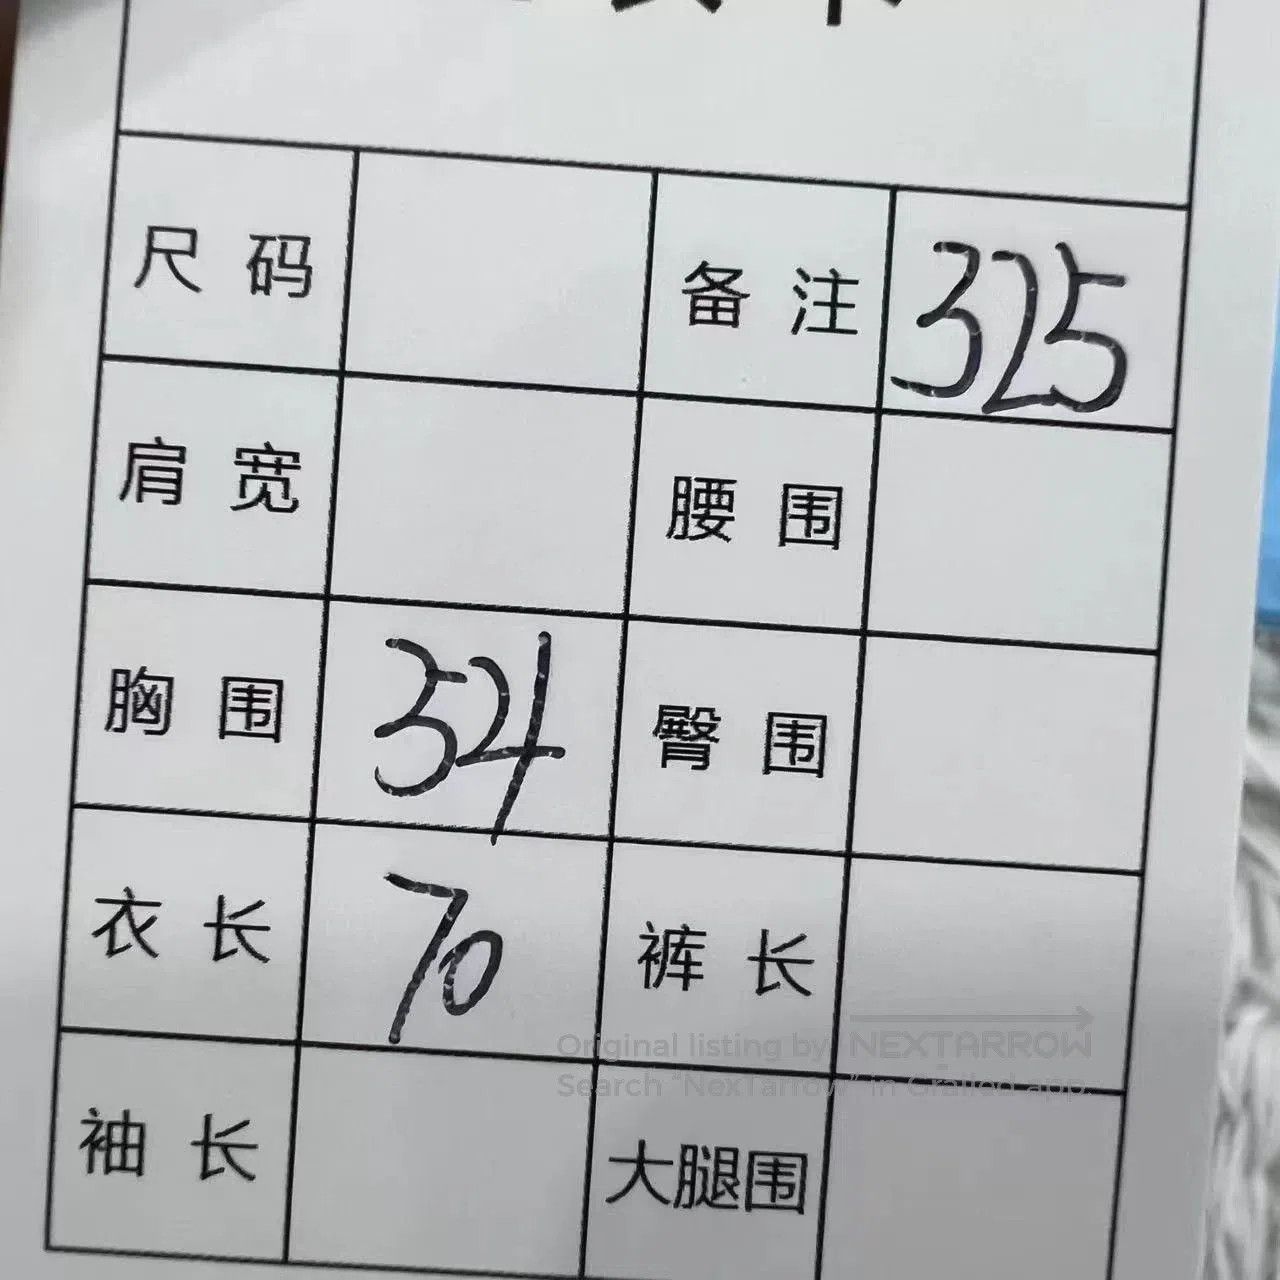 尺 码 备 注 325
肩 宽 腰 围
胸 围 54 臀 围
衣 长 70 裤 长
Original listing by NEXTARROW
Search "NexTarrow" in Grailed app.
袖 长 大腿围